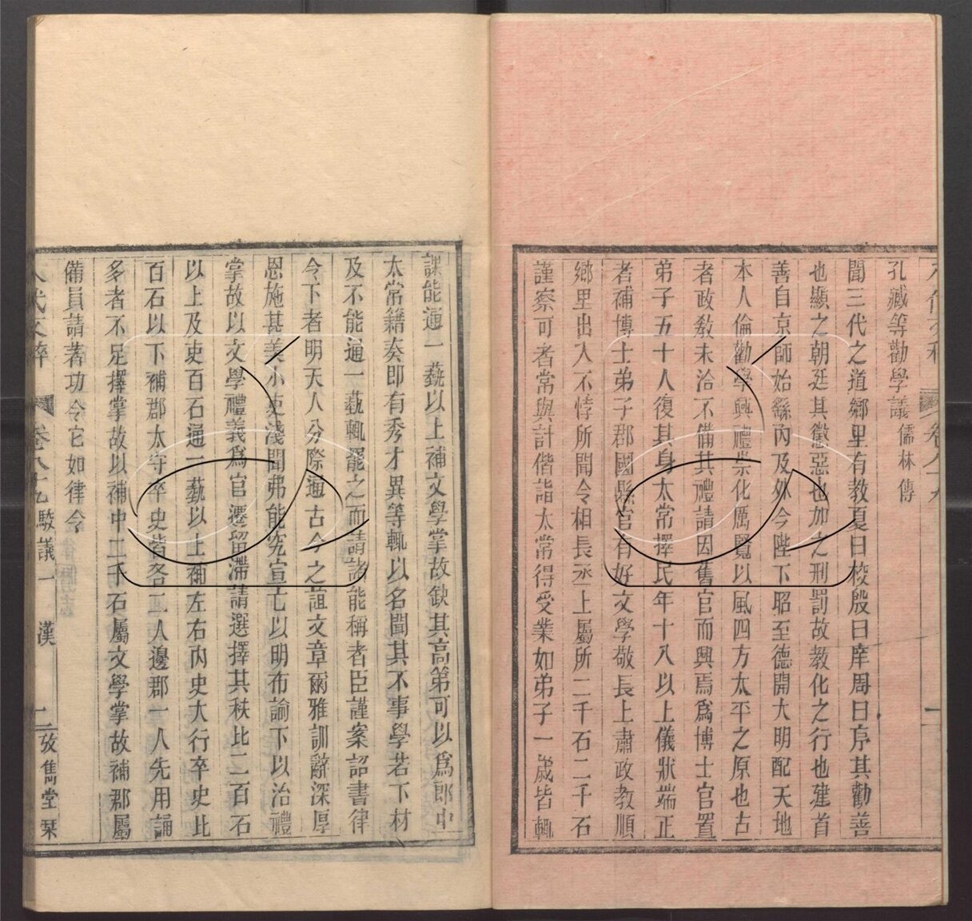 孔臧等勸學議儒林傳
聞三代之道鄉里有教夏曰校殷曰庠周曰序其勸善
也顯之朝廷其懲惡也加之刑罰故教化之行也建首
善自京師始繇內及外今陛下昭至德開大明配天地
本人倫勸學興禮崇化厲賢以風四方太平之原也古
者政教未洽不備其禮請因舊官而興焉爲博士官置
弟子五十人復其身太常擇民年十八以上儀狀端正
者補博士弟子郡國縣官有好文學敬長上肅政教順
鄉里出入不悖所聞令相長丞上屬所二千石二千石
謹察可者常與計偕詣太常得受業如弟子一歲皆輒
課能通一蓺以上補文學掌故缺其高第可以爲郎中
太常籍奏即有秀才異等輒以名聞其不事學若下材
及不能通一蓺輒罷之而請諸能稱者臣謹案詔書律
令下者明天人分際通古今之誼文章爾雅訓辭深厚
恩施甚美小吏淺聞弗能究宣亡以明布諭下以治禮
掌故以文學禮義爲官遷留滯請選擇其秩比二百石
以上及吏百石通一蓺以上補左右內史大行卒史比
百石以下補郡太守卒史皆各二人邊郡一人先用誦
多者不足擇掌故以補中二千石屬文學掌故補郡屬
備員請著功令它如律令
八代文粹 卷八十九 駮議一 漢 二 攷雋堂栞